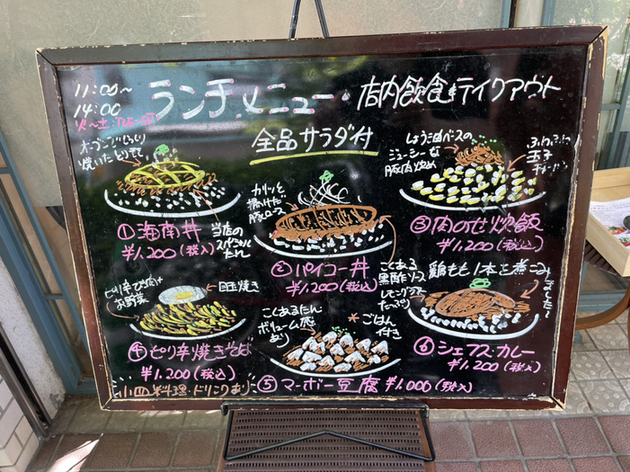 11:00〜
14:00
ランチメニュー・店内飲食&テイクアウト
火〜土
全品サラダ付
オーブンでじっくり
焼いたとりモモ
①海南丼
¥1,200(税込)
当店の
スペシャル
たれ
カリッと
揚げた
豚ロース
②パイコー丼
¥1,200(税込)
しょうゆベースの
ジューシーな
豚肉炒め
ふわふわ
玉子
チャーハン
③肉のせ炒飯
¥1,200(税込)
ピリ辛ひき肉と
お野菜
目玉焼き
④ピリ辛焼きそば
¥1,200(税込)
こくあるたれ
ボリューム感
あり
*ごはん
付き
⑤マーボー豆腐 ¥1,000(税込)
こくある
黒酢ソース
鶏もも1本を煮こみ
ました!
⑥シェフズカレー
¥1,200(税込)
小皿料理・ドリンクあり